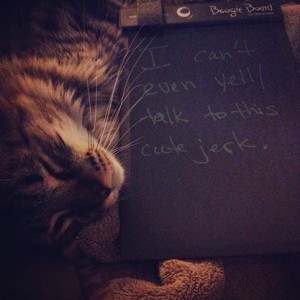 Boogie Board
I can't
even yell/
talk to this
cute jerk.